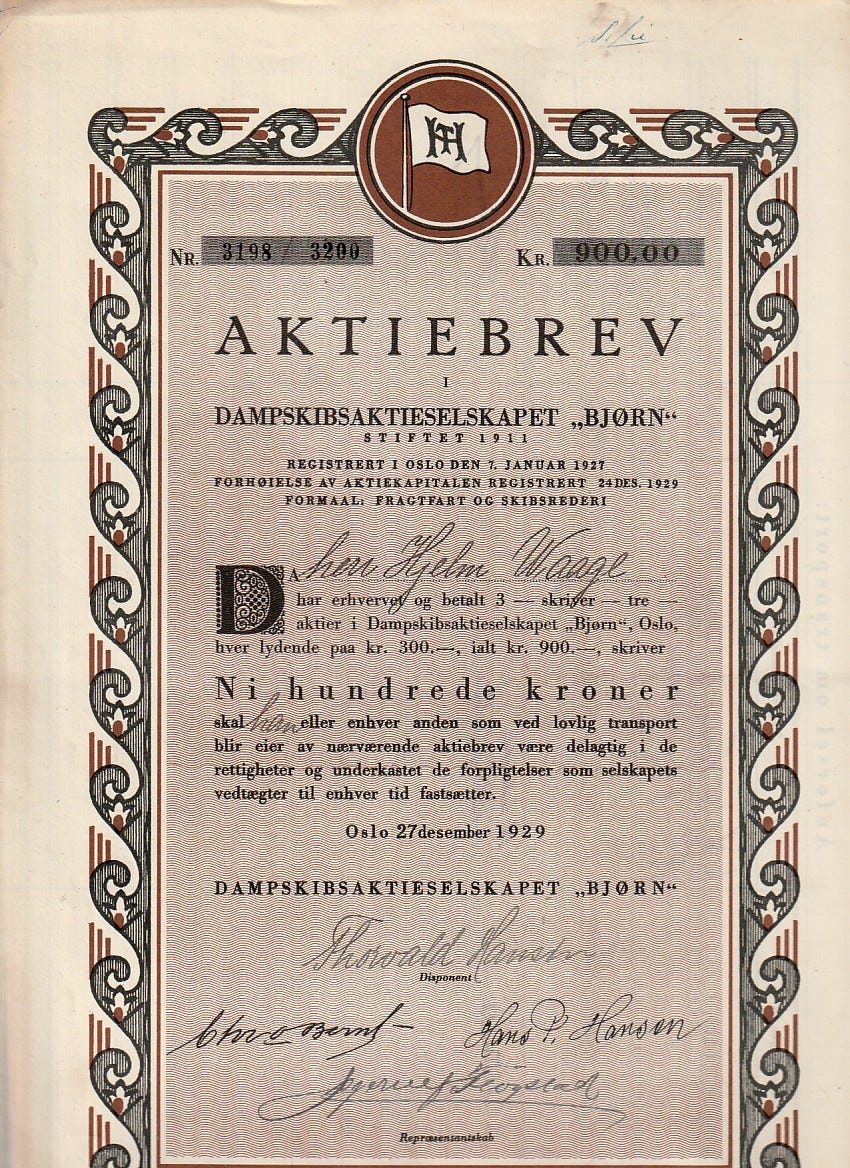 HTH
NR. 3198 / 3200 KR. 900,00
AKTIEBREV
I
DAMPSKIBSAKTIESELSKAPET „BJØRN“
STIFTET 1911
REGISTRERT I OSLO DEN 7. JANUAR 1927
FORHØIELSE AV AKTIEKAPITALEN REGISTRERT 24 DES. 1929
FORMAAL: FRAGTFART OG SKIBSREDERI
DA herr Hjelm Waage
har erhvervet og betalt 3 — skriver — tre —
aktier i Dampskibsaktieselskapet „Bjørn“, Oslo,
hver lydende paa kr. 300.—, ialt kr. 900.—, skriver
Ni hundrede kroner
skal han eller enhver anden som ved lovlig transport
blir eier av nærværende aktiebrev være delagtig i de
rettigheter og underkastet de forpligtelser som selskapets
vedtægter til enhver tid fastsætter.
Oslo 27 desember 1929
DAMPSKIBSAKTIESELSKAPET „BJØRN“
Thorvald Hansen
Disponent
Hans P. Hansen
Repræsentantskab